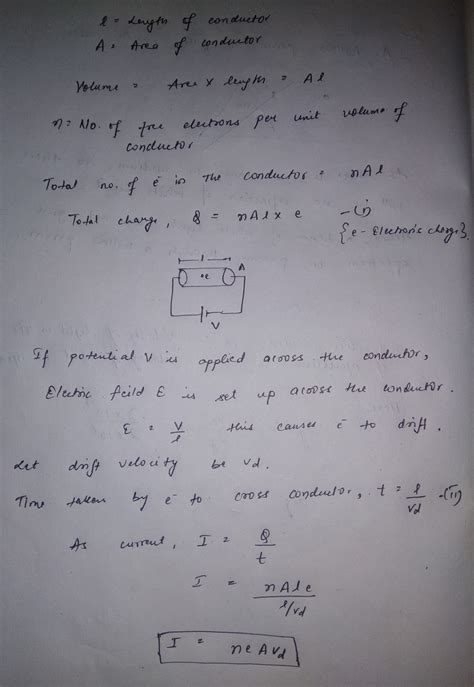 l = Length of conductor
A = Area of conductor
Volume = Area x length = Al
n = No. of free electrons per unit volume of
conductor
Total no. of e⁻ in the conductor = nAl
Total charge, Q = nAl x e -(i)
{e - Electronic charge}
l
A
•e
V
If potential V is applied across the conductor,
Electric feild E is set up across the conductor.
E = V/l this causes e⁻ to drift.
Let drift velocity be vd.
Time taken by e⁻ to cross conductor, t = l/vd -(ii)
As current, I = Q/t
I = nAle / l/vd
I = neAvd